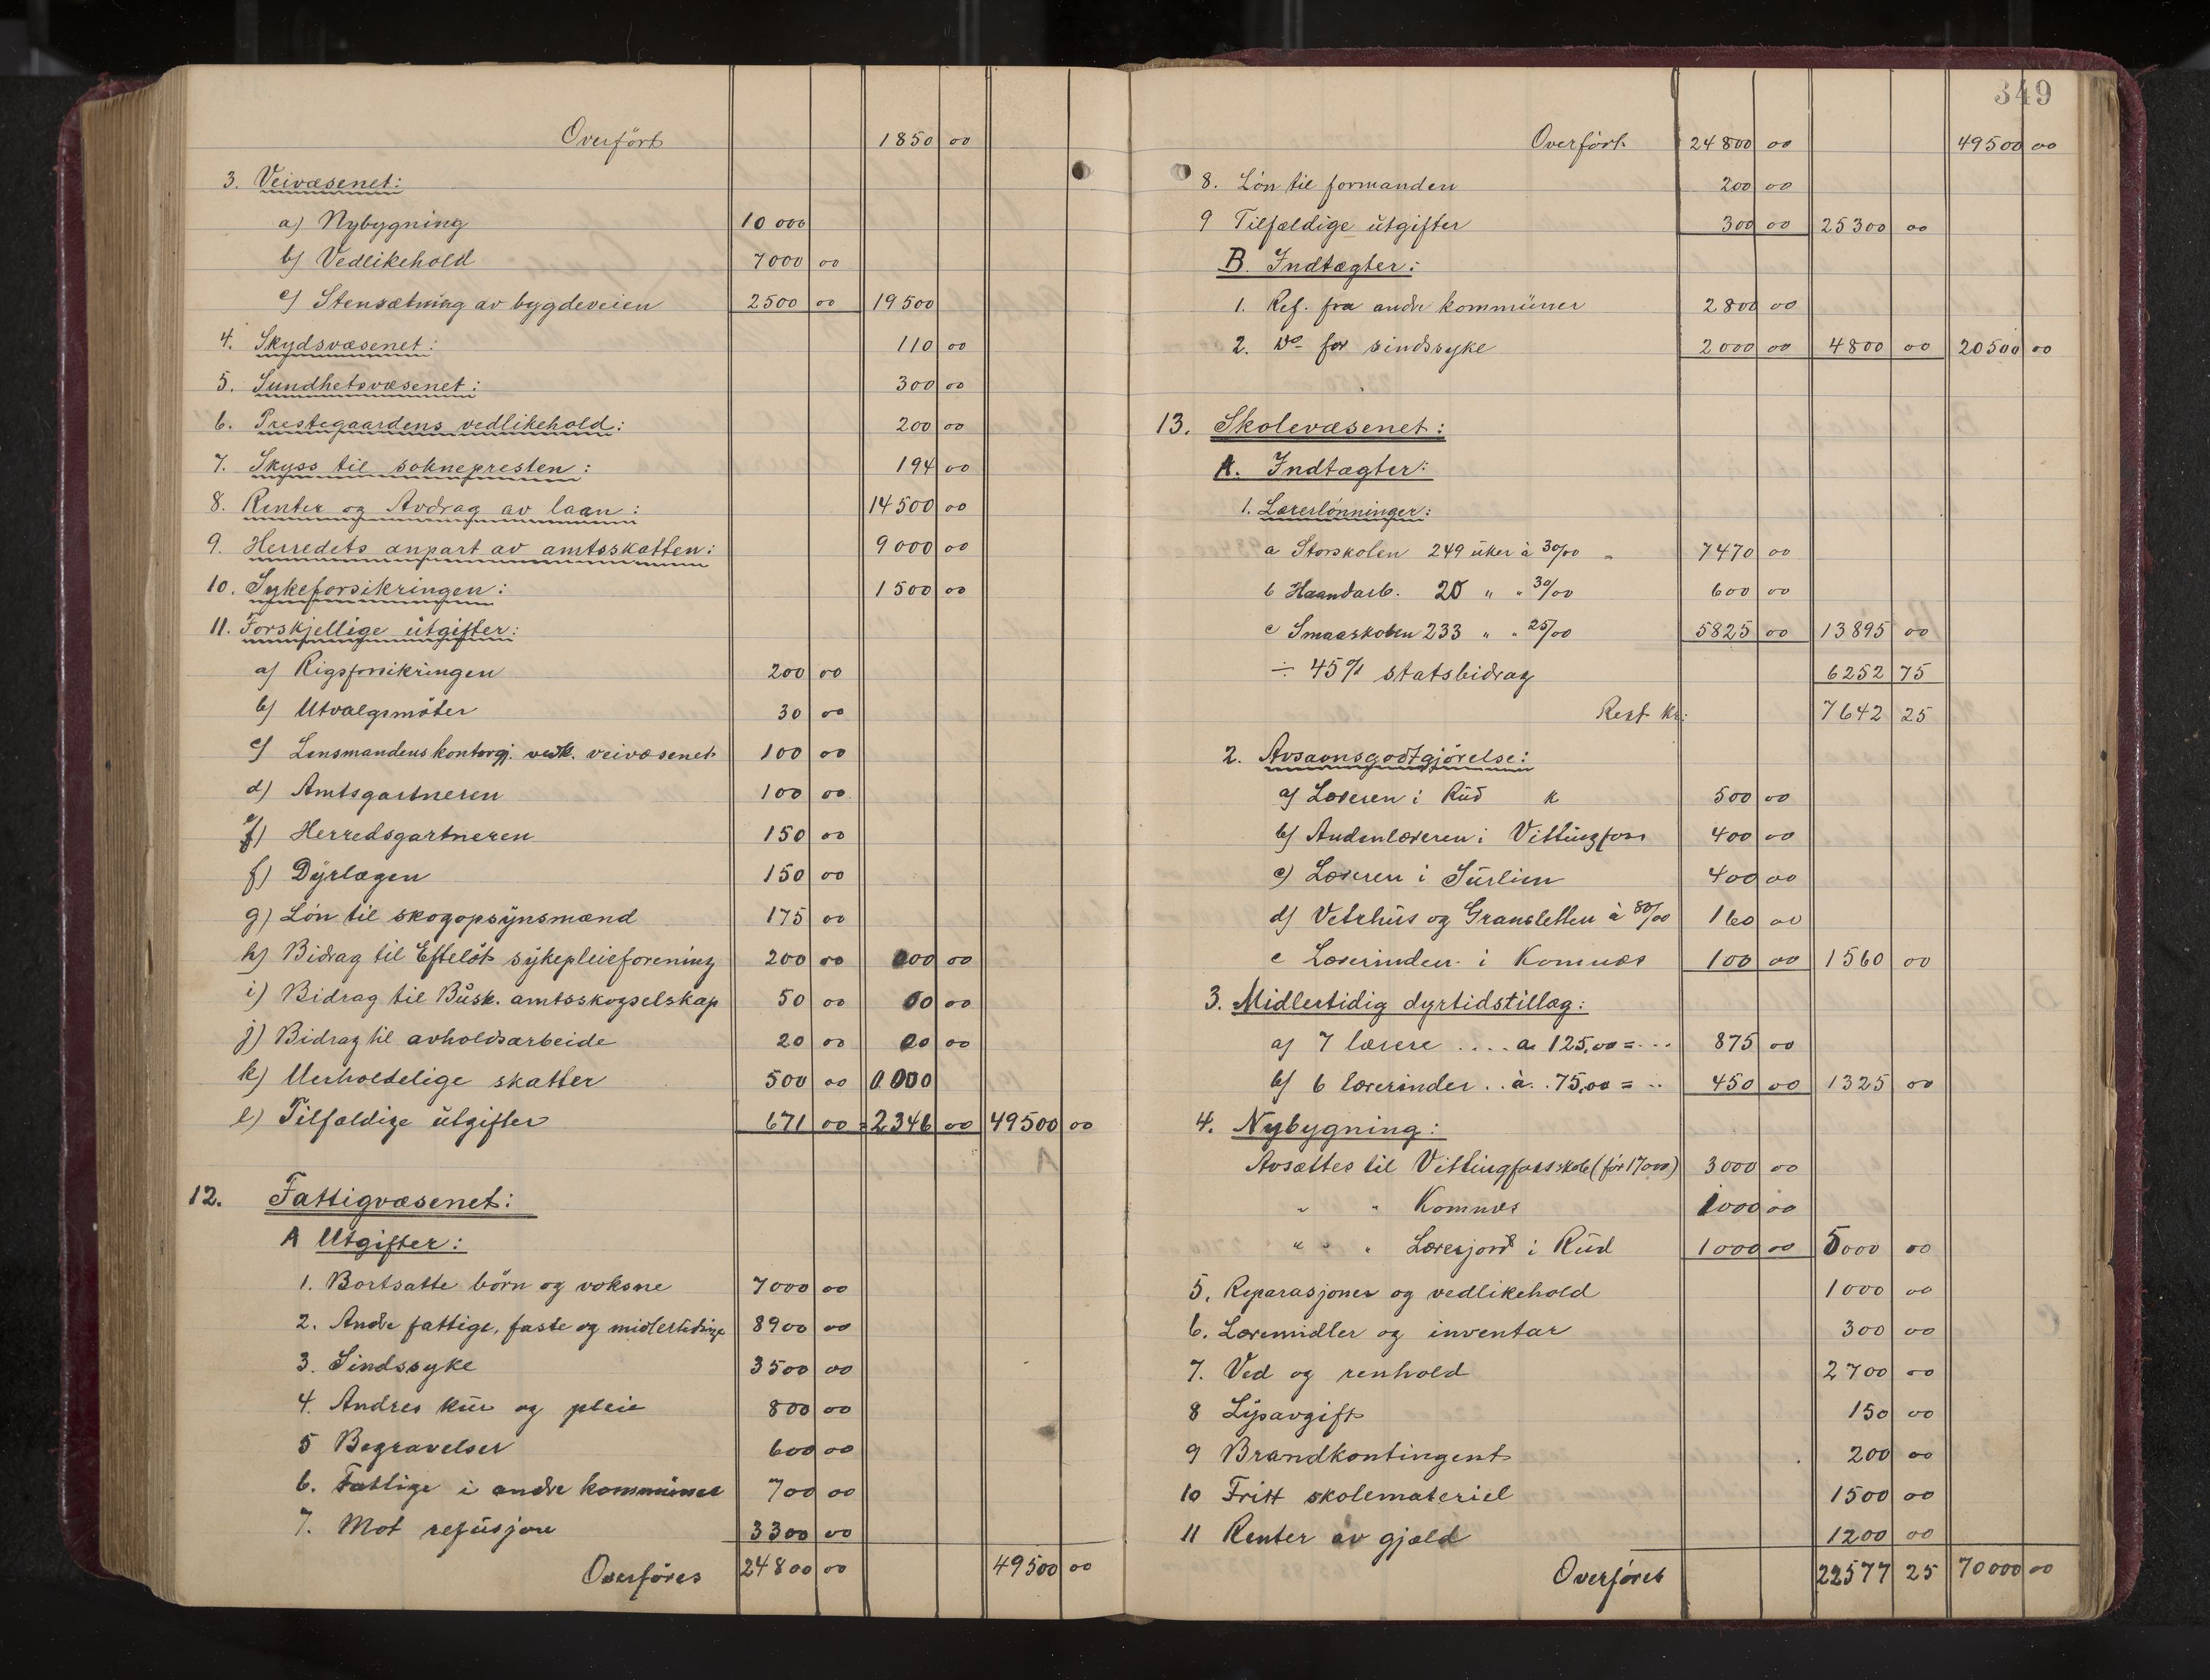 Overført 1850 00
3. Veivæsenet:
a) Nybygning 10 000
b) Vedlikehold 7000 00
c) Stensætning av bygdeveien 2500 00 19500
4. Skydsvæsenet: 110 00
5. Sundhetsvæsenet: 300 00
6. Prestegaardens vedlikehold: 200 00
7. Skyss til soknepresten: 194 00
8. Renter og Avdrag av laan: 14500 00
9. Herredets anpart av amtsskatten: 9000 00
10. Sykeforsikringen: 1500 00
11. Forskjellige utgifter:
a) Rigsforsikringen 200 00
b) Utvalgsmöter 30 00
c) Lensmandens kontorgj. vedk. veivæsenet 100 00
d) Amtsgartneren 100 00
Herredsgartneren 150 00
f) Dyrlægen 150 00
g) Lön til skogopsynsmænd 175 00
h) Bidrag til Efteløt sykepleieforening 200 00 000 00
i) Bidrag til Busk. amtsskogselskap 50 00 00 00
j) Bidrag til avholdsarbeide 20 00 00 00
k) Uerholdelige skatter 500 00 0.000
l) Tilfældige utgifter 671 00 2346 00 49500 00
12. Fattigvæsenet:
A Utgifter:
1. Bortsatte börn og voksne 7000 00
2. Andre fattige, faste og midlertidige 8900 00
3. Sindssyke 3500 00
4. Andres kur og pleie 800 00
5 Begravelser 600 00
6. Fattige i andre kommuner 700 00
7. Mot refusjon 3300 00
Overføres 24800 00 49500 00
349
Overført 24800 00 49500 00
8. Lön til formanden 200 00
9 Tilfældige utgifter 300 00 25300 00
B. Indtægter:
1. Ref. fra andre kommuner 2800 00
2. Do for sindssyke 2000 00 4800 00 20500 00
13. Skolevæsenet:
A. Indtægter:
1. Lærerlønninger:
a Storskolen 249 uker à 30/00 " 7470 00
b Haandarb. 20 " " 30/00 600 00
c Smaaskolen 233 " " 25/00 5825 00 13895 00
÷ 45% statsbidrag 6252 75
Rest kr: 7642 25
2. Avsavnsgodtgjörelse:
a) Læreren i Rud k 500 00
b) Andenlæreren i Vittingfoss 400 00
c) Læreren i Surlien 400 00
d) Vetrhus og Gransletten à 80/00 160 00
e Lærerinden i Komnæs 100 00 1560 00
3. Midlertidig dyrtidstillæg:
a) 7 lærere .... a 125,00 = ... 875 00
b) 6 lærerinder .. à .. 75,00 = .. 450 00 1325 00
4. Nybygning:
Avsættes til Vittingfoss skole (før 17000) 3000 00
" " Komnæs 1000 00
" " " Lærerjord i Rud 1000 00 5000 00
5. Reparasjoner og vedlikehold 1000 00
6. Læremidler og inventar 300 00
7. Ved og renhold 2700 00
8 Lysavgift 150 00
9 Brandkontingent 200 00
10 Fritt skolemateriel 1500 00
11 Renter av gjæld 1200 00
Overføres 22577 25 70000 00